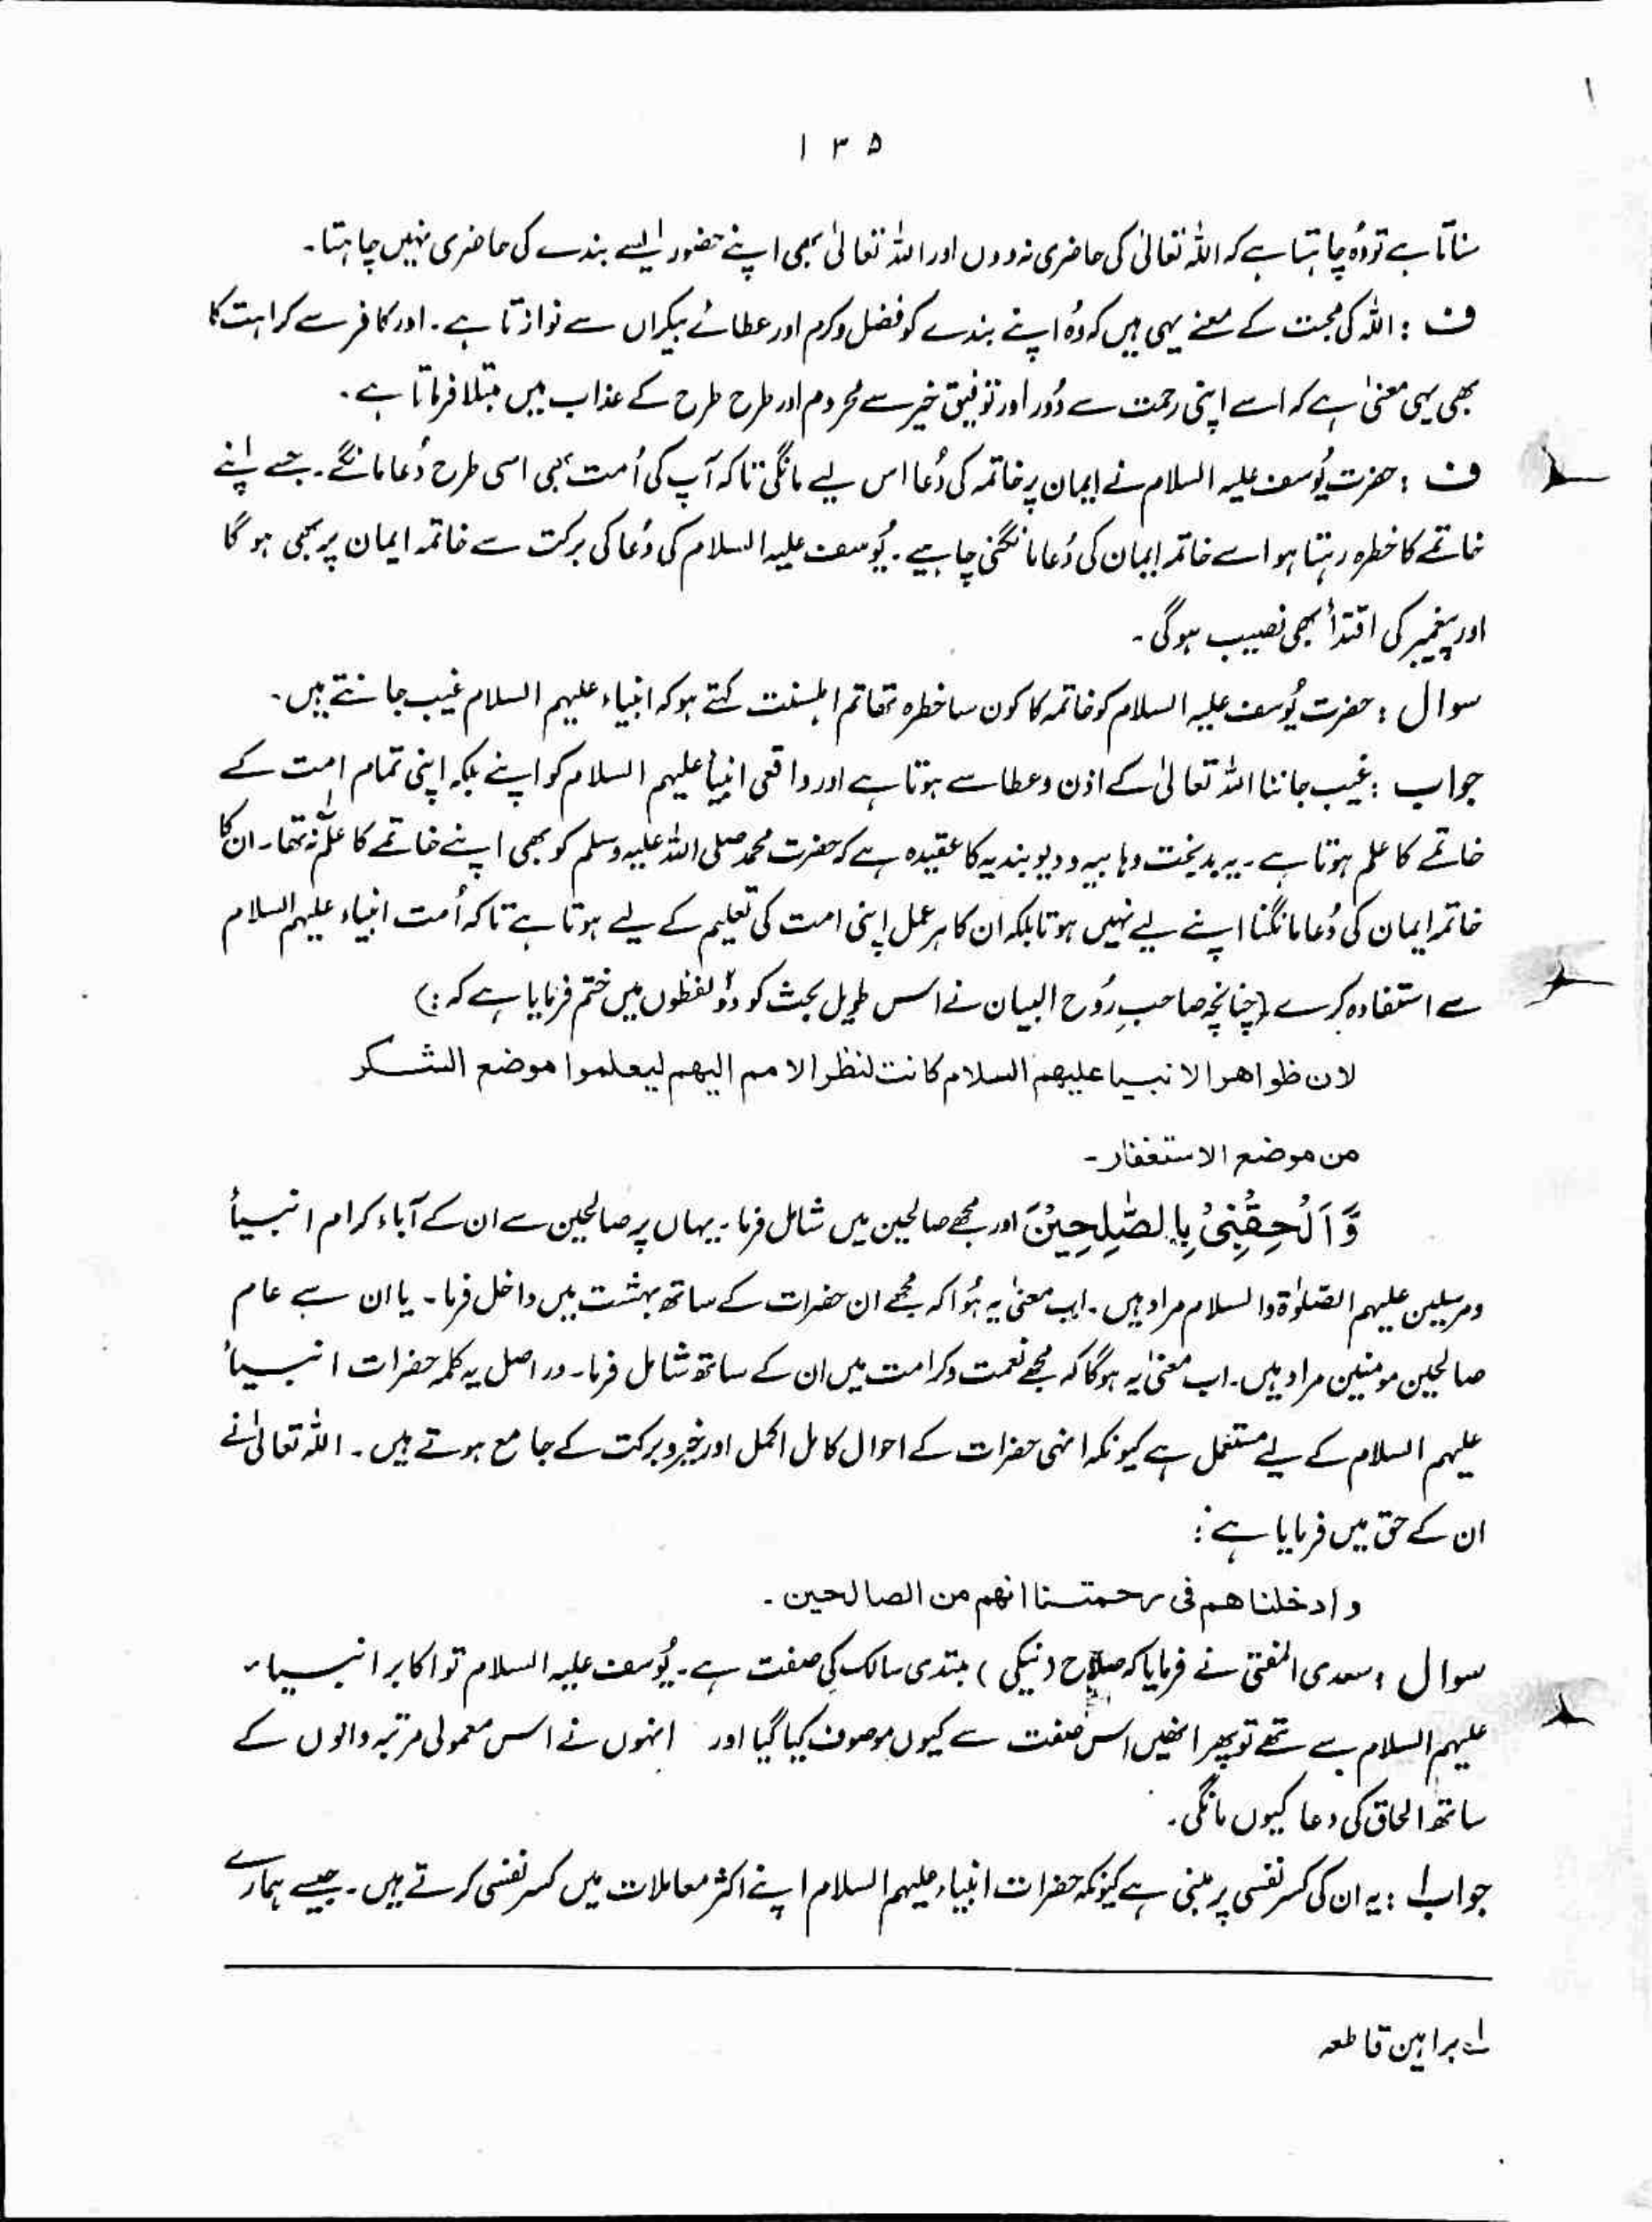 ۱۳۵
سناتا ہے تو وُہ چاہتا ہے کہ اللہ تعالیٰ کی حاضری نہ دوں اور اللہ تعالیٰ بھی اپنے حضور ایسے بندے کی حاضری نہیں چاہتا۔
ف : اللہ کی محبت کے معنے یہی ہیں کہ وُہ اپنے بندے کو فضل و کرم اور عطائے بیکراں سے نوازتا ہے۔ اور کافر سے کراہت کا
بھی یہی معنیٰ ہے کہ اسے اپنی رحمت سے دُور اور توفیق خیر سے محروم اور طرح طرح کے عذاب میں مبتلا فرماتا ہے۔
ف : حضرت یُوسف علیہ السلام نے ایمان پر خاتمہ کی دُعا اس لیے مانگی تاکہ آپ کی اُمت بھی اسی طرح دُعا مانگے۔ جسے اپنے
خاتمے کا خطرہ رہتا ہو اسے خاتمہ ایمان کی دُعا مانگنی چاہیے۔ یُوسف علیہ السلام کی دُعا کی برکت سے خاتمہ ایمان پر بھی ہو گا
اور پیغمبر کی اقتدأ بھی نصیب ہوگی۔
سوال : حضرت یُوسف علیہ السلام کو خاتمہ کا کون سا خطرہ تھا تم اہلسنت کہتے ہو کہ انبیاء علیہم السلام غیب جانتے ہیں۔
جواب : غیب جاننا اللہ تعالیٰ کے اذن و عطا سے ہوتا ہے اور واقعی انبیأ علیہم السلام کو اپنے بلکہ اپنی تمام امت کے
خاتمے کا علم ہوتا ہے۔ یہ بدبخت وہابیہ و دیوبندیہ کا عقیدہ ہے کہ حضرت محمد صلی اللہ علیہ وسلم کو بھی اپنے خاتمے کا علم نہ تھا۔ ان کا
خاتمہ ایمان کی دُعا مانگنا اپنے لیے نہیں ہوتا بلکہ ان کا ہر عمل اپنی امت کی تعلیم کے لیے ہوتا ہے تاکہ اُمت انبیاء علیہم السلام
سے استفادہ کرے (چنانچہ صاحبِ رُوح البیان نے اس طویل بحث کو دو لفظوں میں ختم فرمایا ہے کہ :)
لان ظواهر الانبیا علیهم السلام کانت لنظر الامم الیهم لیعلموا موضع الشکر
من موضع الاستغفار۔
وَّ اَلْحِقْنِیْ بِالصّٰلِحِیْنَ اور مجھے صالحین میں شامل فرما۔ یہاں پر صالحین سے ان کے آباء کرام انبیأ
و مرسلین علیہم الصّلوٰۃ والسلام مراد ہیں۔ اب معنیٰ یہ ہُوا کہ مجھے ان حضرات کے ساتھ بہشت میں داخل فرما۔ یا ان سے عام
صالحین مومنین مراد ہیں۔ اب معنیٰ یہ ہوگا کہ مجھے نعمت و کرامت میں ان کے ساتھ شامل فرما۔ در اصل یہ کلمہ حضرات انبیأ
علیہم السلام کے لیے مستعمل ہے کیونکہ انہی حضرات کے احوال کامل اکمل اور خیر و برکت کے جامع ہوتے ہیں۔ اللہ تعالیٰ نے
ان کے حق میں فرمایا ہے :
و ادخلناهم فی رحمتنا انهم من الصالحین۔
سوال : سعدی المفتی نے فرمایا کہ صلاح (نیکی) مبتدی سالک کی صفت ہے۔ یُوسف علیہ السلام تو اکابر انبیاء
علیہم السلام سے تھے تو پھر انھیں اس صفت سے کیوں موصوف کیا گیا اور انہوں نے اس معمولی مرتبہ والوں کے
ساتھ الحاق کی دعا کیوں مانگی۔
جواب ۱ : یہ ان کی کسر نفسی پر مبنی ہے کیونکہ حضرات انبیاء علیہم السلام اپنے اکثر معاملات میں کسر نفسی کرتے ہیں۔ جیسے ہمارے
لے براہین قاطعہ